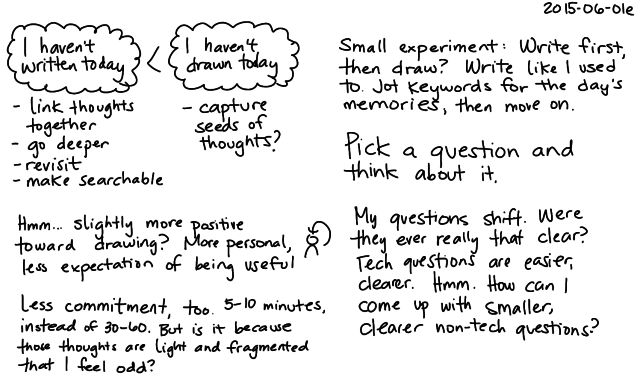 2015-06-01e
I haven't
written today
<
I haven't
drawn today
- link thoughts
together
- go deeper
- revisit
- make searchable
- capture
seeds of
thoughts?
Hmm... slightly more positive
toward drawing? More personal,
less expectation of being useful
Less commitment, too. 5-10 minutes,
instead of 30-60. But is it because
those thoughts are light and fragmented
that I feel odd?
Small experiment: Write first,
then draw? Write like I used
to. Jot keywords for the day's
memories, then move on.
Pick a question and
think about it.
My questions shift. Were
they ever really that clear?
Tech questions are easier,
clearer. Hmm. How can I
come up with smaller,
clearer non-tech questions?